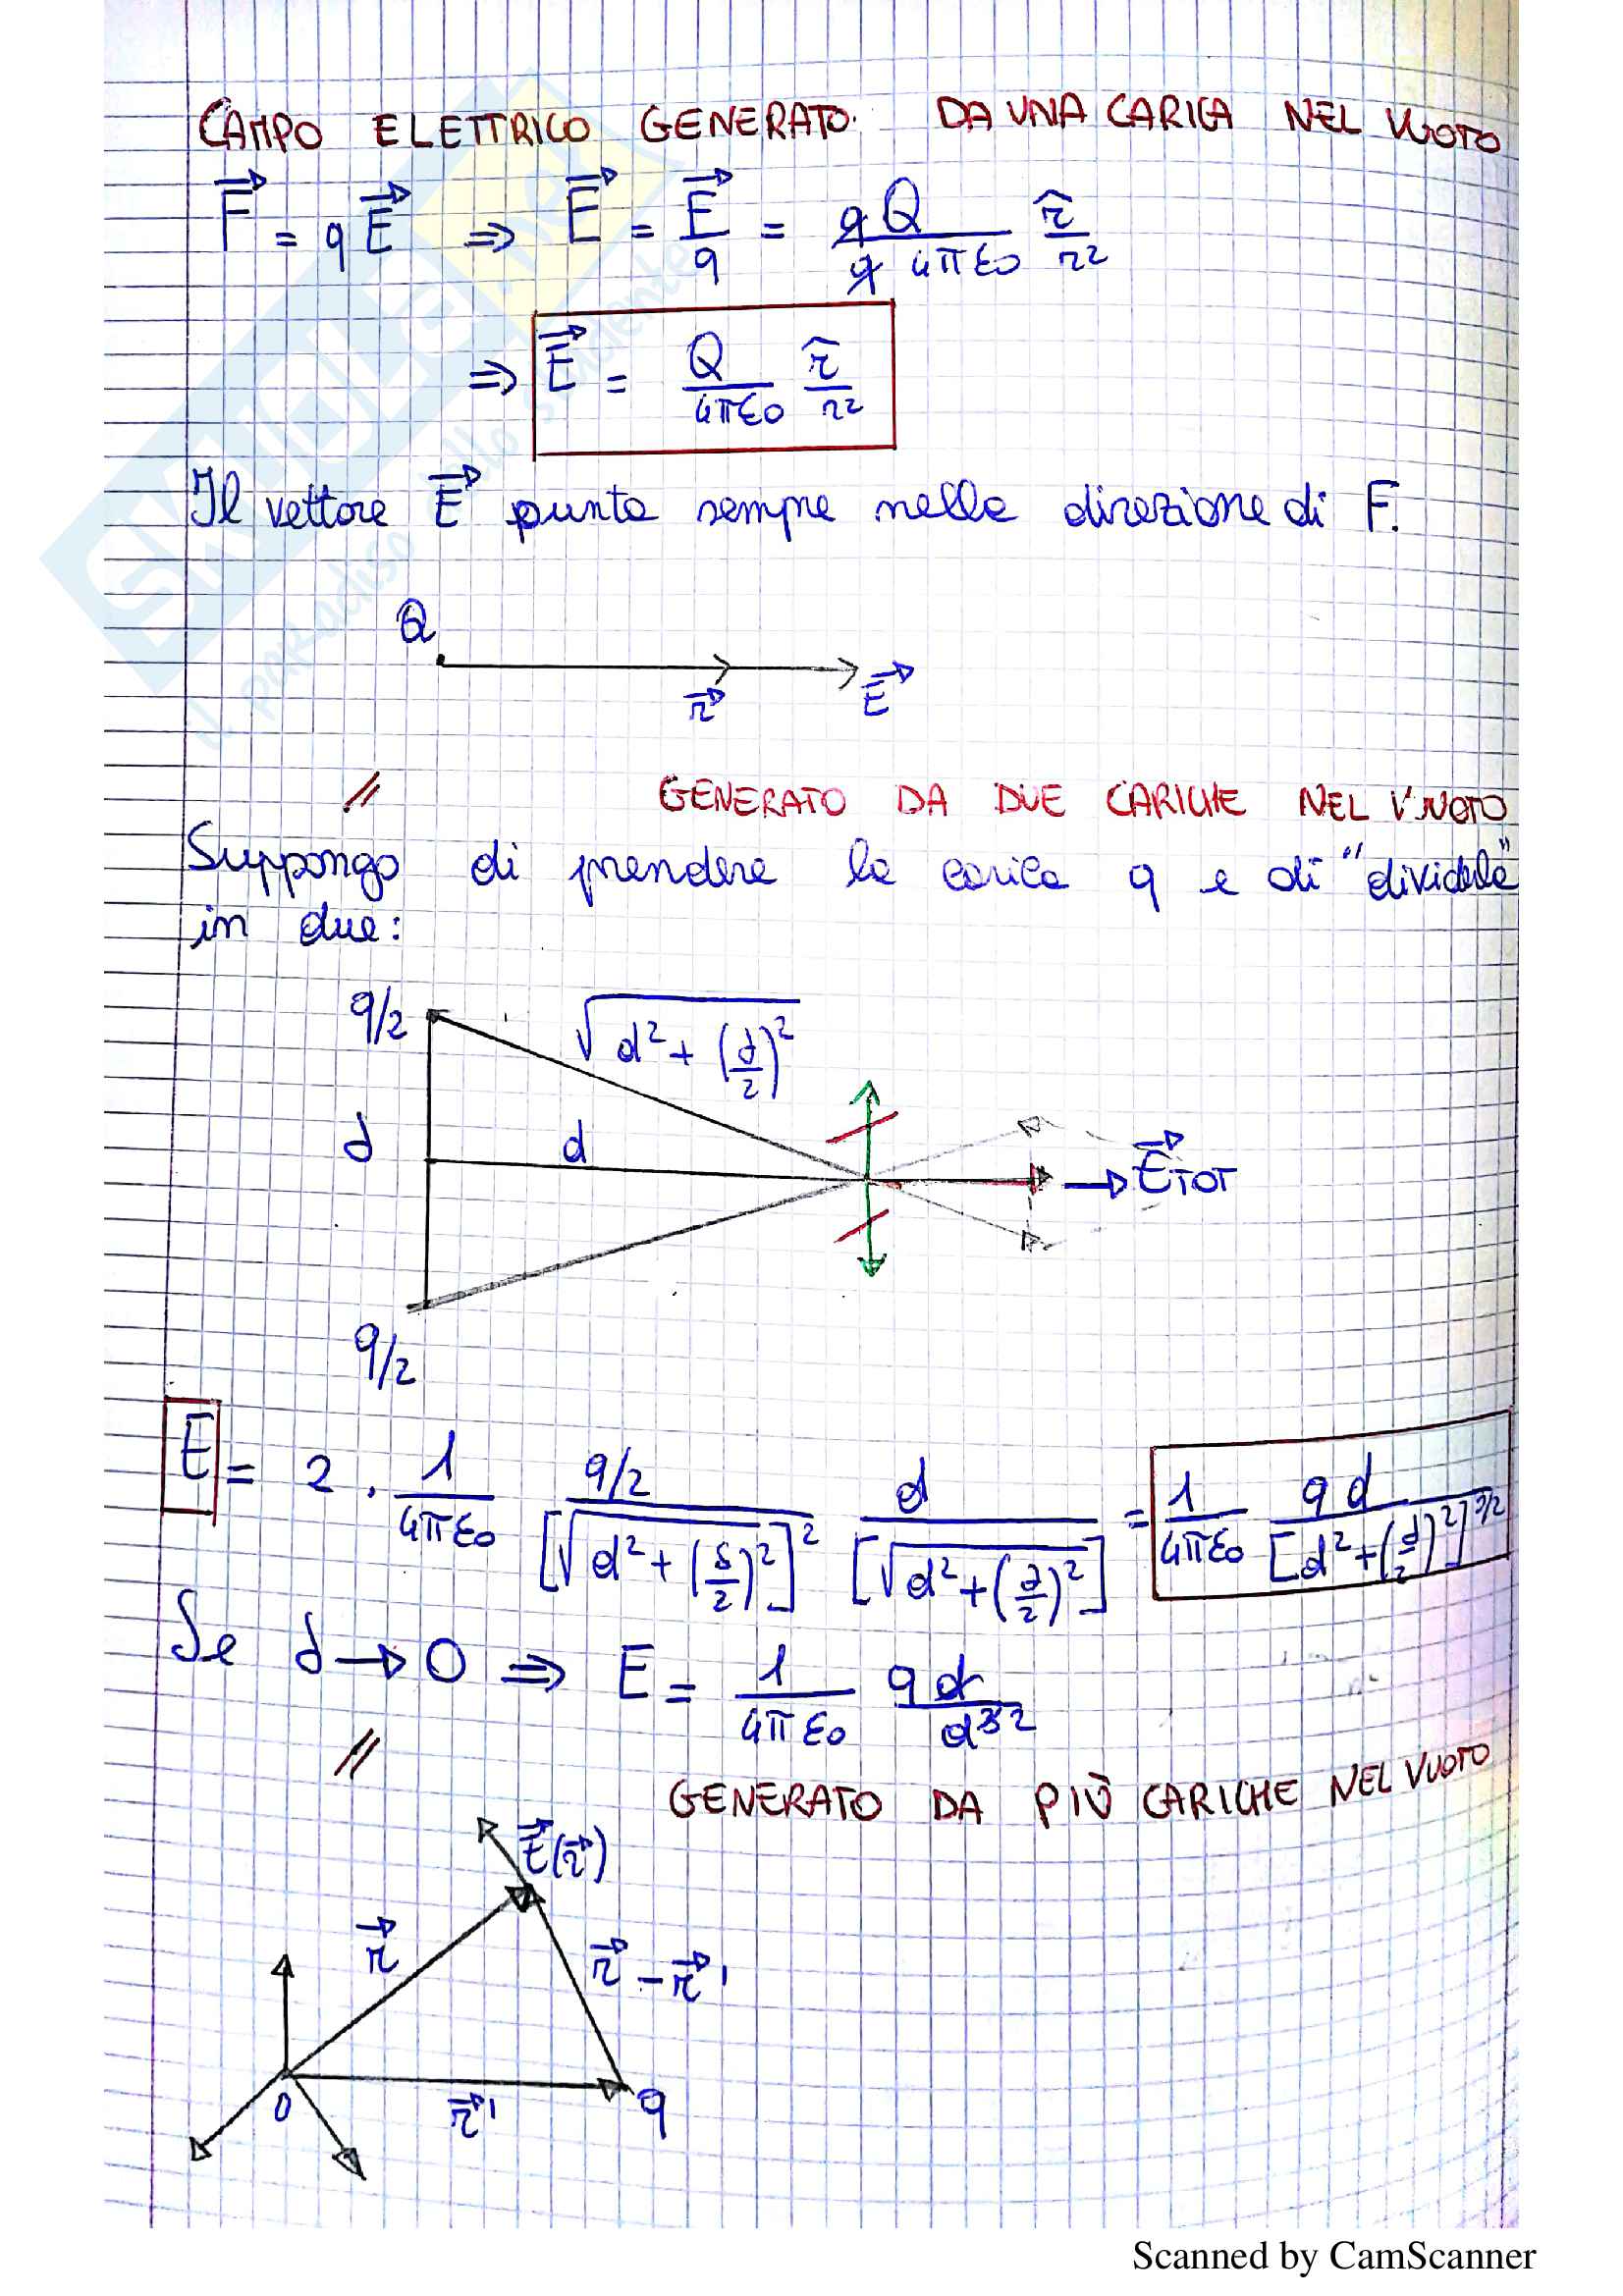 CAMPO ELETTRICO GENERATO DA UNA CARICA NEL VUOTO
F⃗ = qE⃗ ⇒ E⃗ = E⃗/q = qQ/(q 4πε0) r̂/r²
⇒ E⃗ = Q/(4πε0) r̂/r²
Il vettore E⃗ punta sempre nella direzione di F.
Q
r⃗ E⃗
// GENERATO DA DUE CARICHE NEL VUOTO
Suppongo di prendere la carica q e di "dividerla"
in due:
q/2 √(d² + (δ/2)²)
δ d E⃗TOT
q/2
E = 2 · 1/(4πε0) (q/2)/[√(d² + (δ/2)²)]² d/[√(d² + (δ/2)²)] = 1/(4πε0) qd/[d² + (δ/2)²]^3/2
Se δ → 0 ⇒ E = 1/(4πε0) qd/d³ ²
// GENERATO DA PIÙ CARICHE NEL VUOTO
E⃗(r⃗)
r⃗ r⃗ - r⃗'
0 r⃗' q
SKUOLA
il paradiso dello studente
Scanned by CamScanner